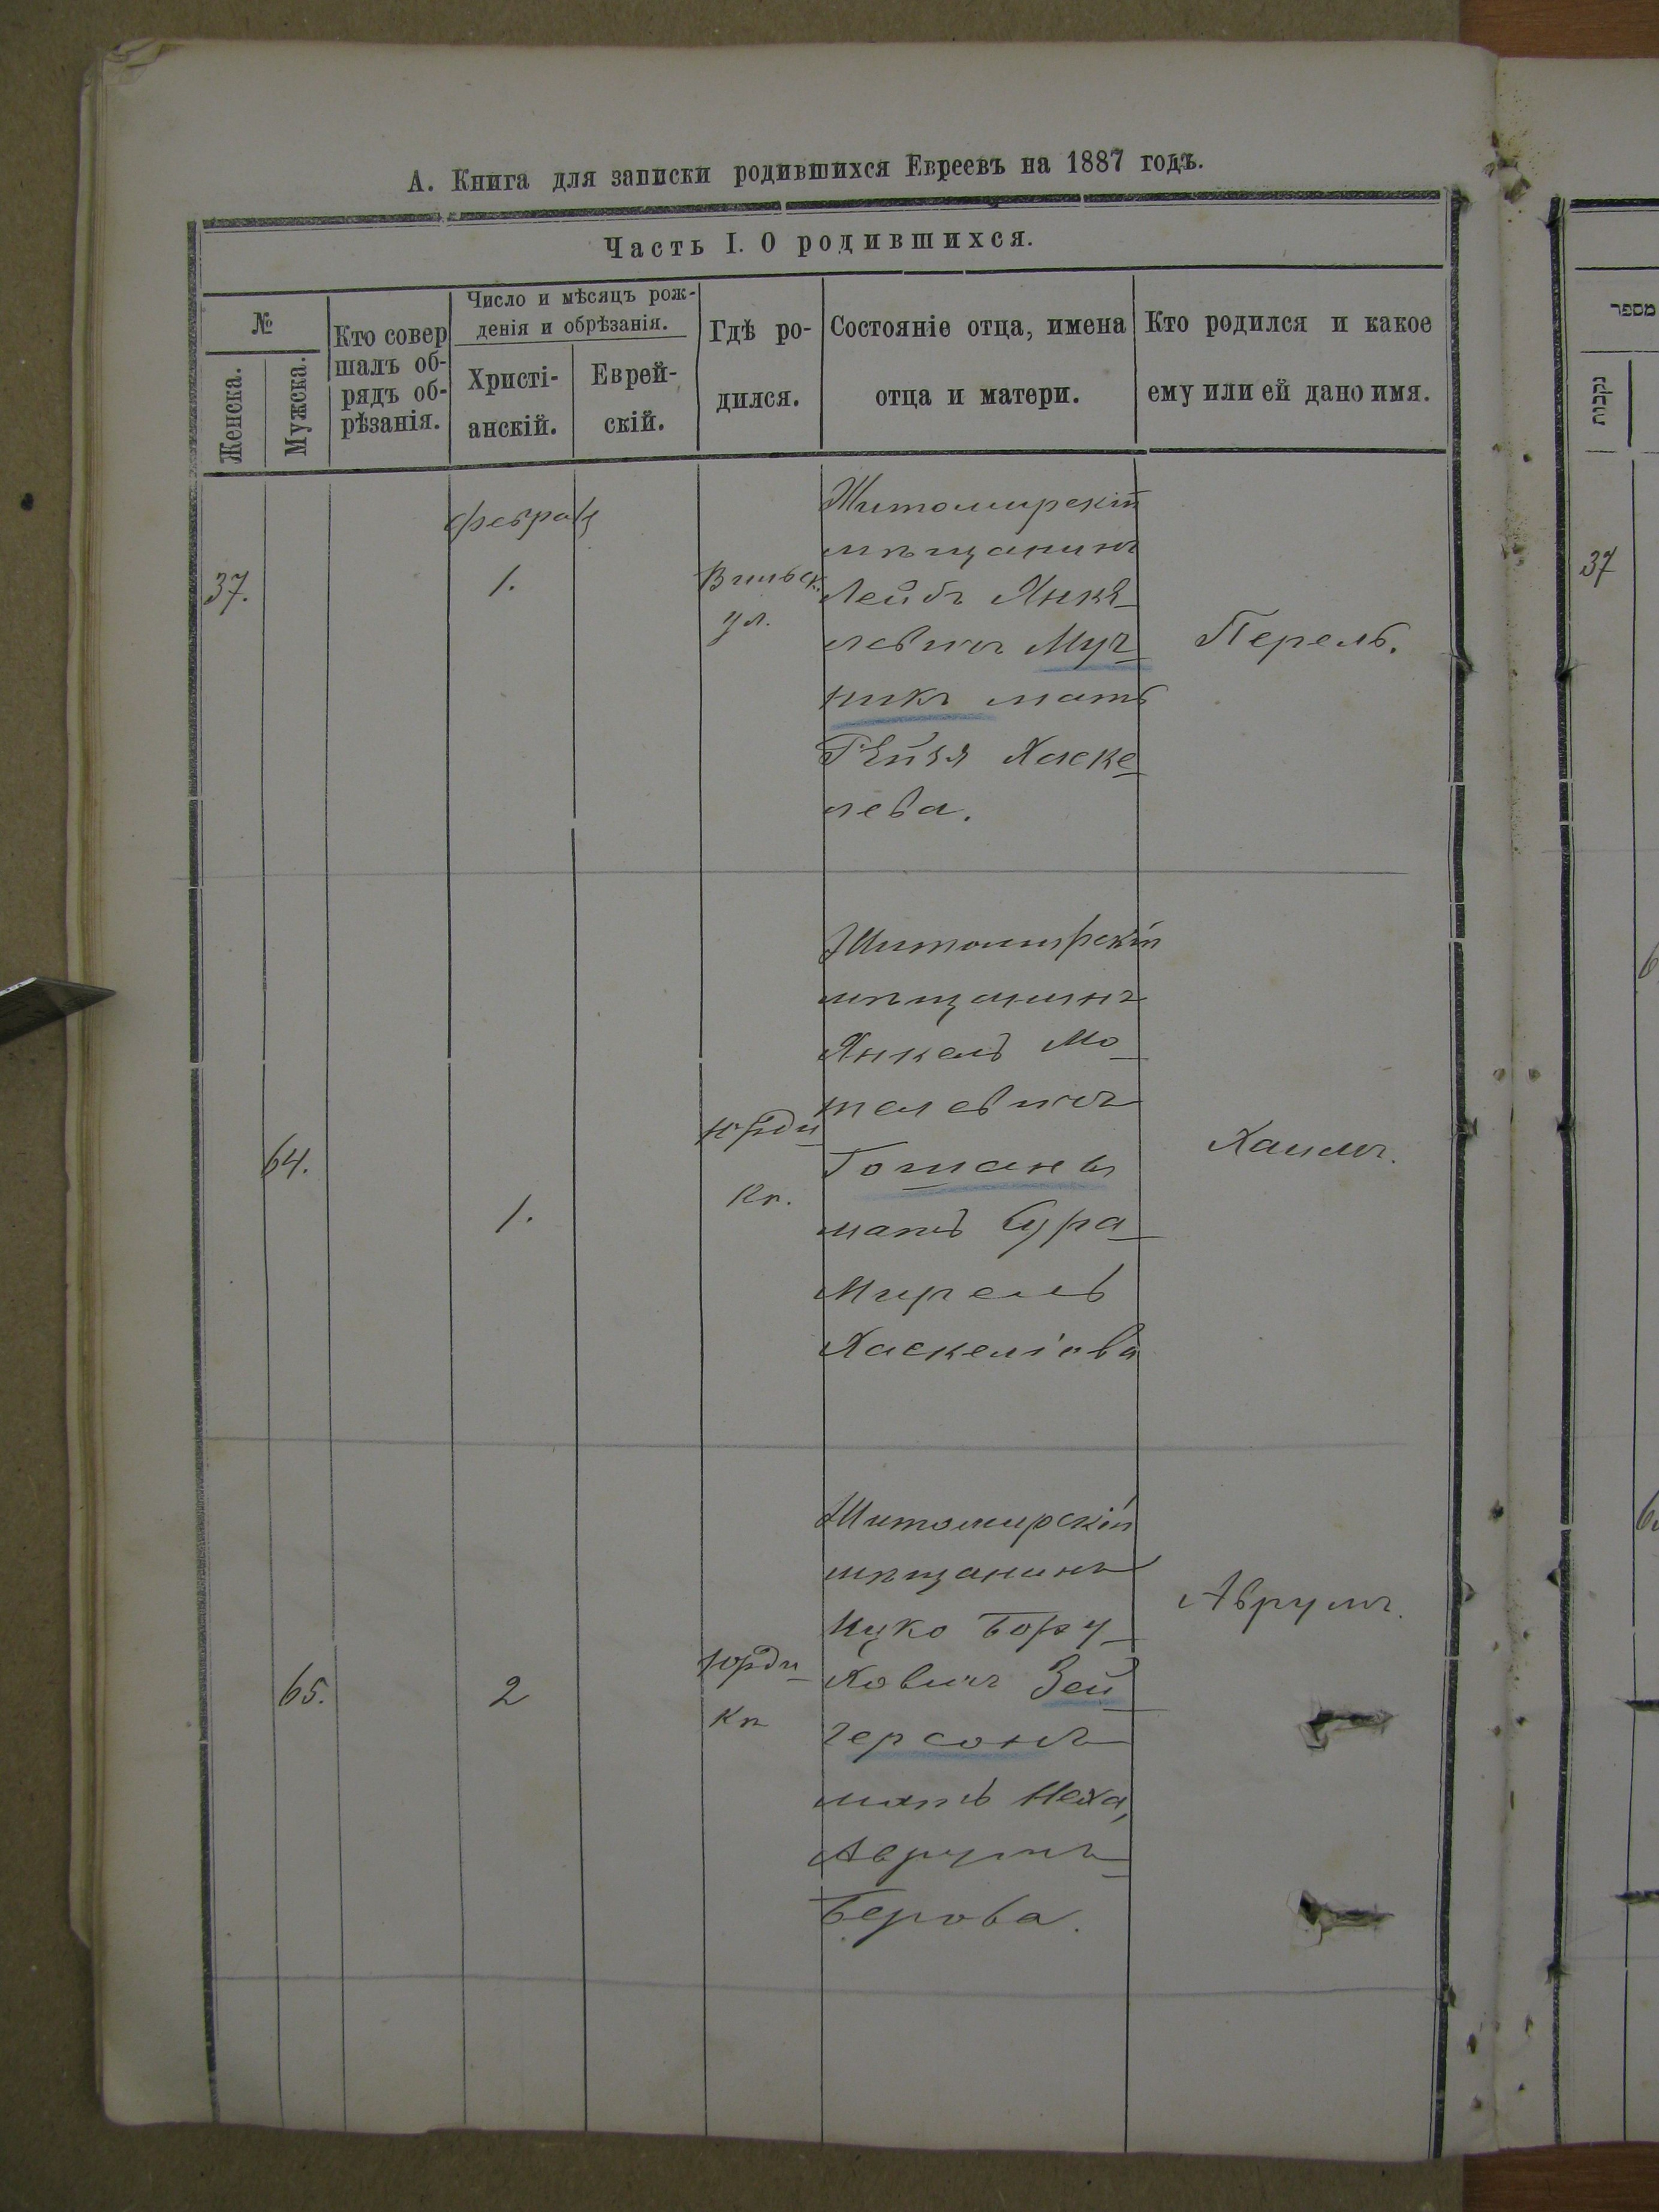 А. Книга для записки родившихся Евреевъ на 1887 годъ.
Часть I. О родившихся.
№
Женска.
Мужска.
Кто совер
шалъ об-
рядъ об-
рѣзанія.
Число и мѣсяцъ рож-
денія и обрѣзанія.
Христі-
анскій.
Еврей-
скій.
Гдѣ ро-
дился.
Состояніе отца, имена
отца и матери.
Кто родился и какое
ему или ей дано имя.
מספר
נקבות
37.
февраля
1.
Вильск.
ул.
Житомирскій
мѣщанинъ
Лейбъ Янке-
левичъ Муч-
никъ мать
Рейзя Хаске-
лева.
Перель.
37
64.
1.
Юрди-
ка.
Житомирскій
мѣщанинъ
Янкель Мо-
телевичъ
Гоманъ
мать Сура-
Мирель
Хаскеліова
Хаимъ.
65.
2
Юрди-
ка
Житомирскій
мѣщанинъ
Ицко Бору-
ховичъ Зей-
герсонъ
мать Неха,
Аврумъ-
Берова.
Аврумъ.